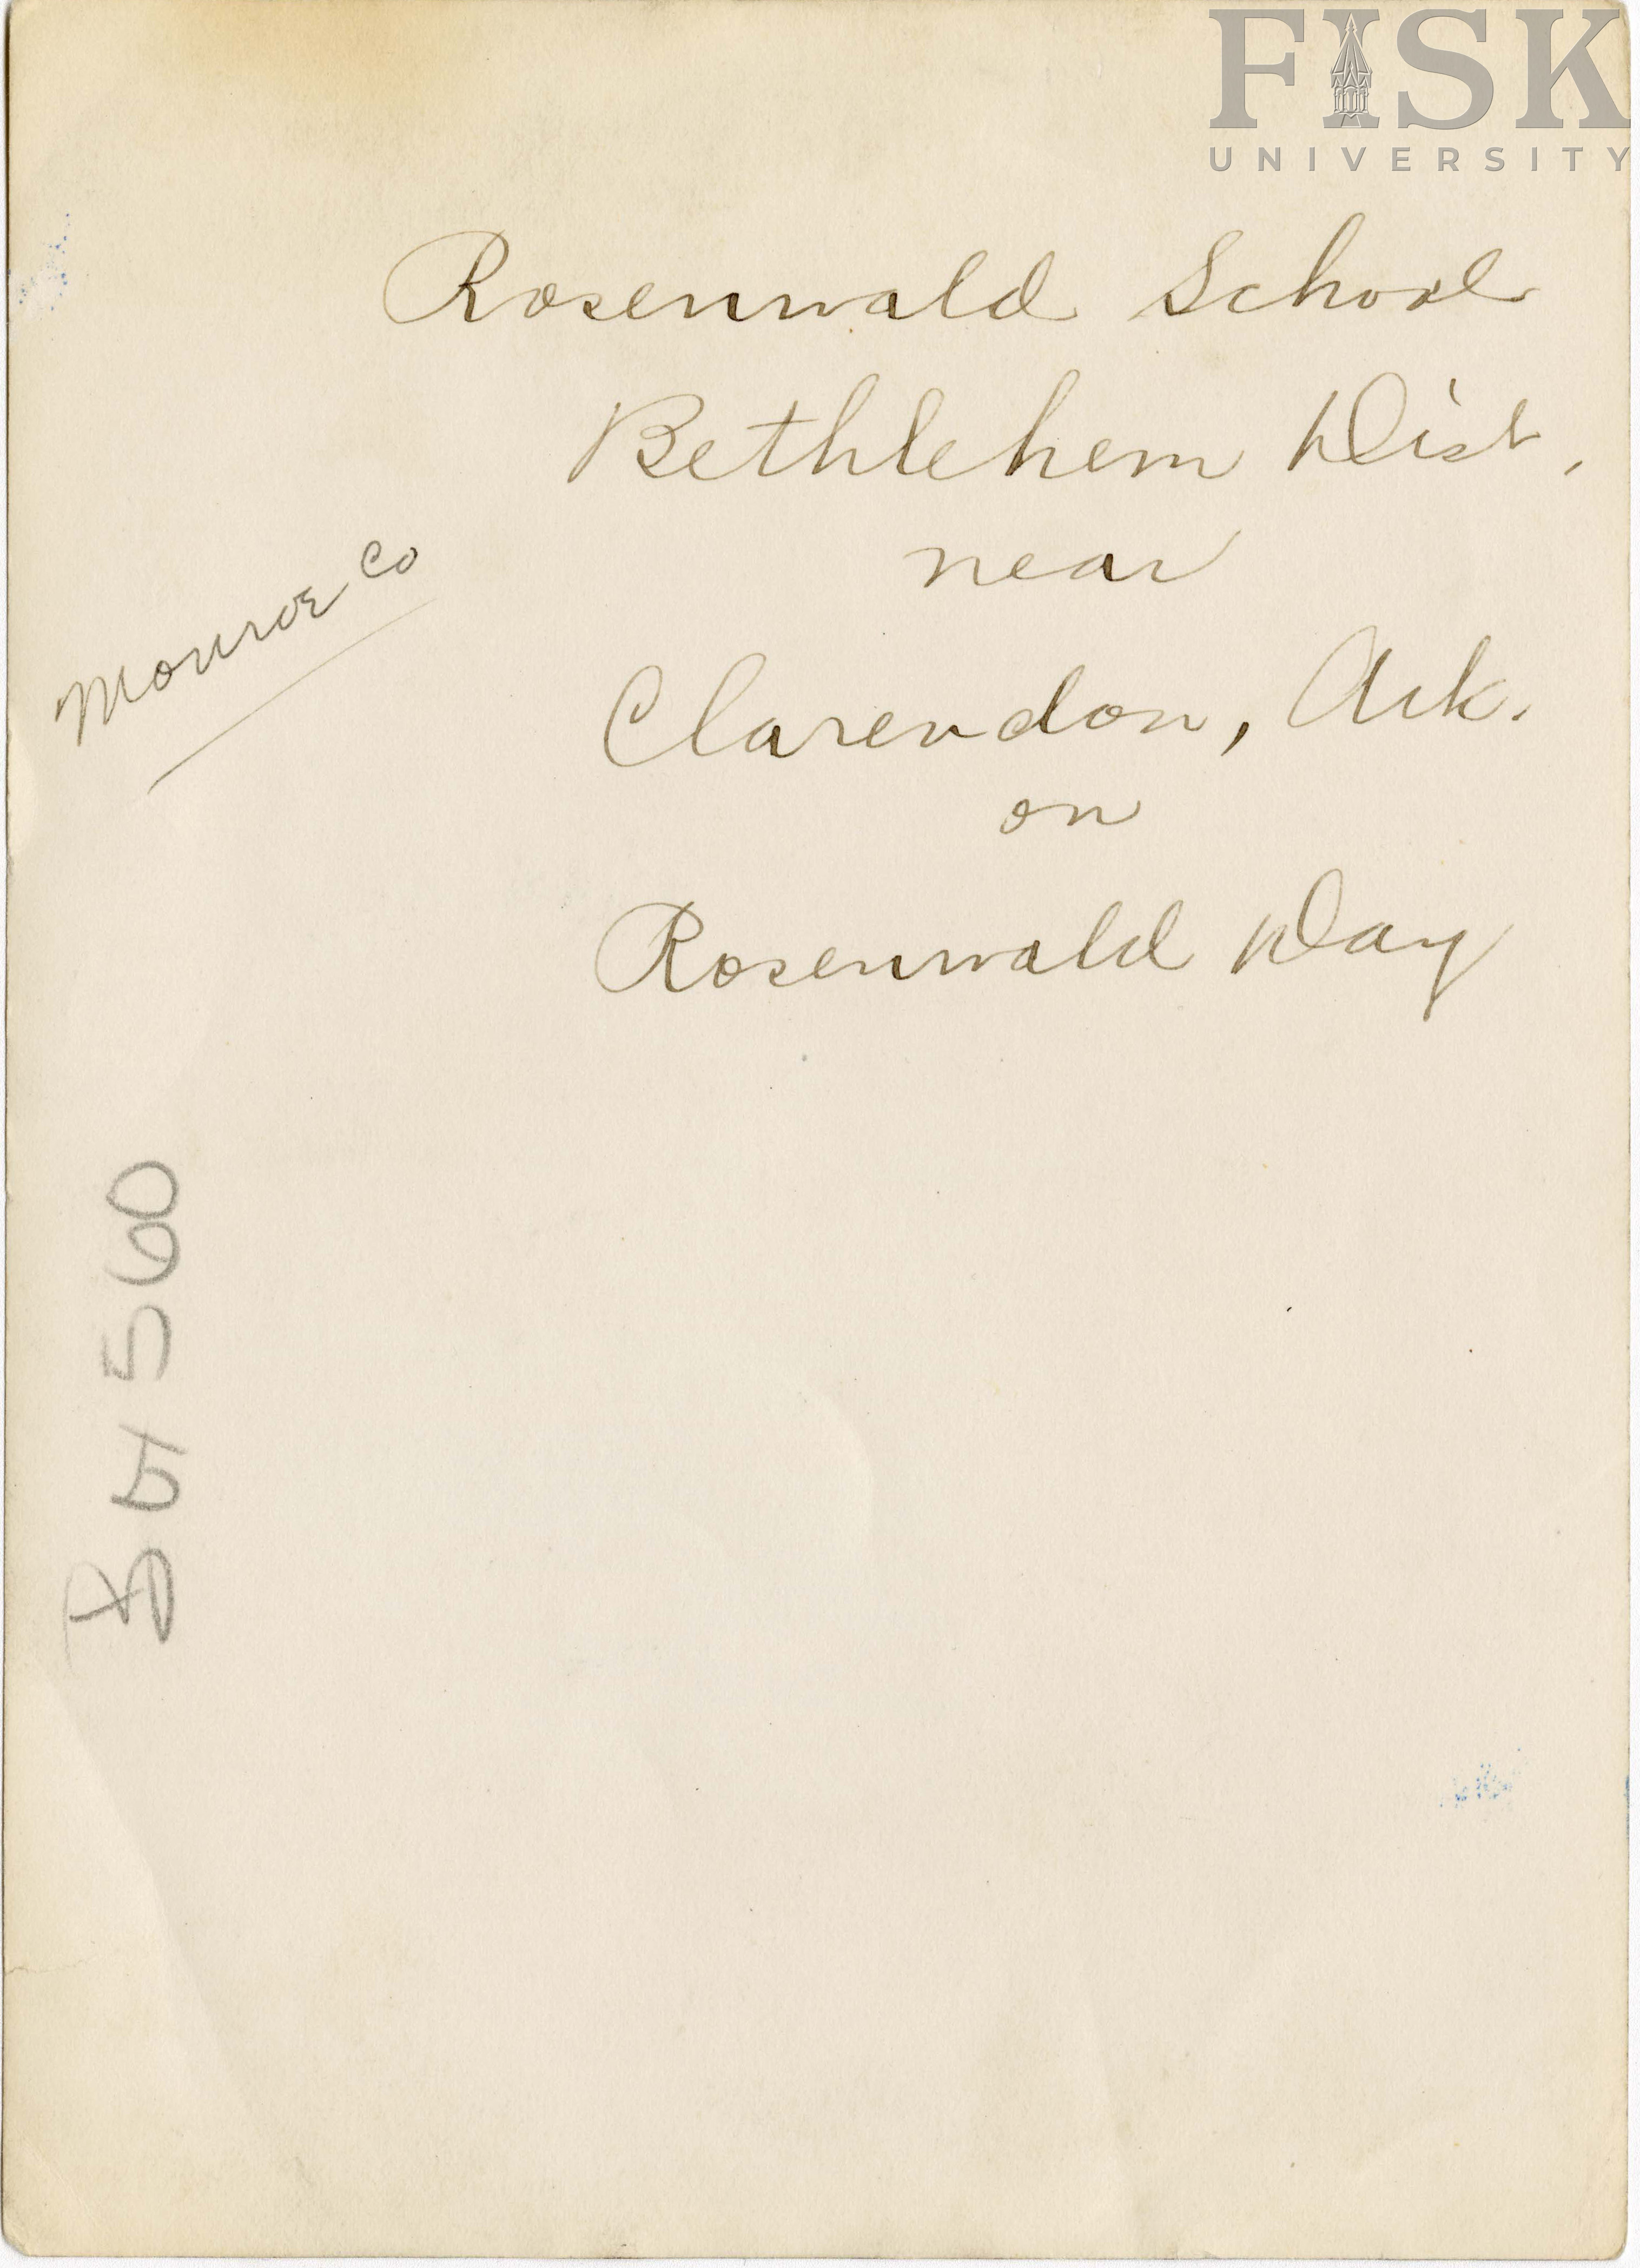 FISK
UNIVERSITY
Rosenwald School
Bethlehem Dist.
near
Monroe Co
Clarendon, Ark.
on
Rosenwald Day